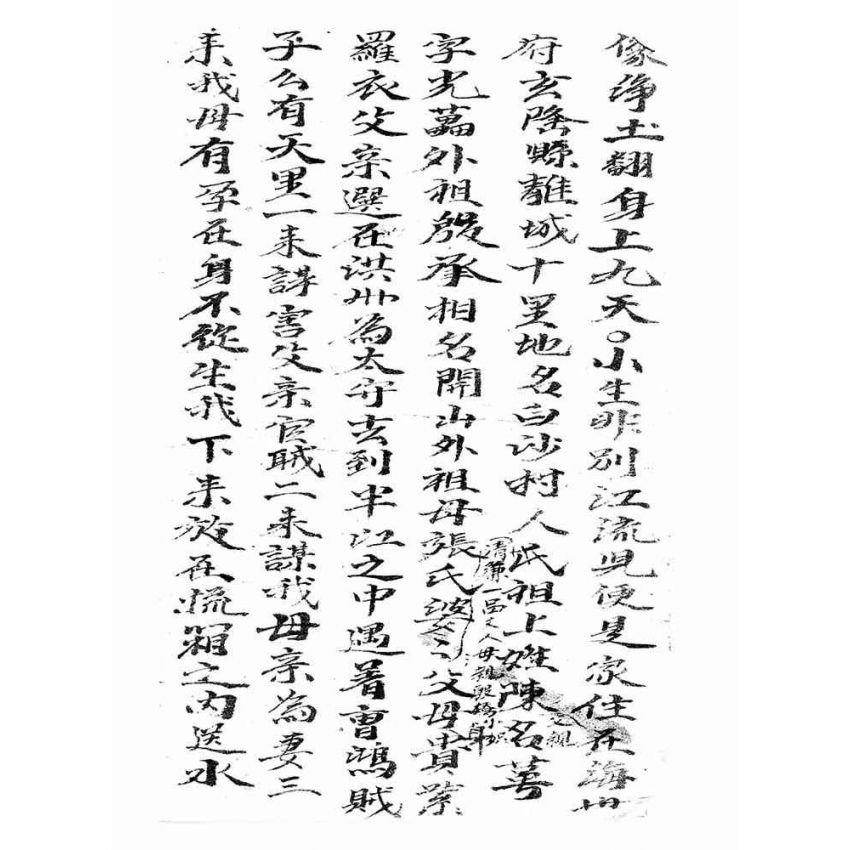 像净土翻身上九天○小生非别江流児便是家住在海州
府玄隂縣離城十里地名白沙村人氏祖上姓陳名萼
字光蕋外祖殷承相名開山外祖母張氏婆〻父母貴紫
羅衣父亲選在洪州為太守去到半江之中遇着曹鴻賊
子么有天里一来謀害父亲官賊二来謀我母亲為妻三
来我母有孕在身不從生我下来放在流箱之内送水